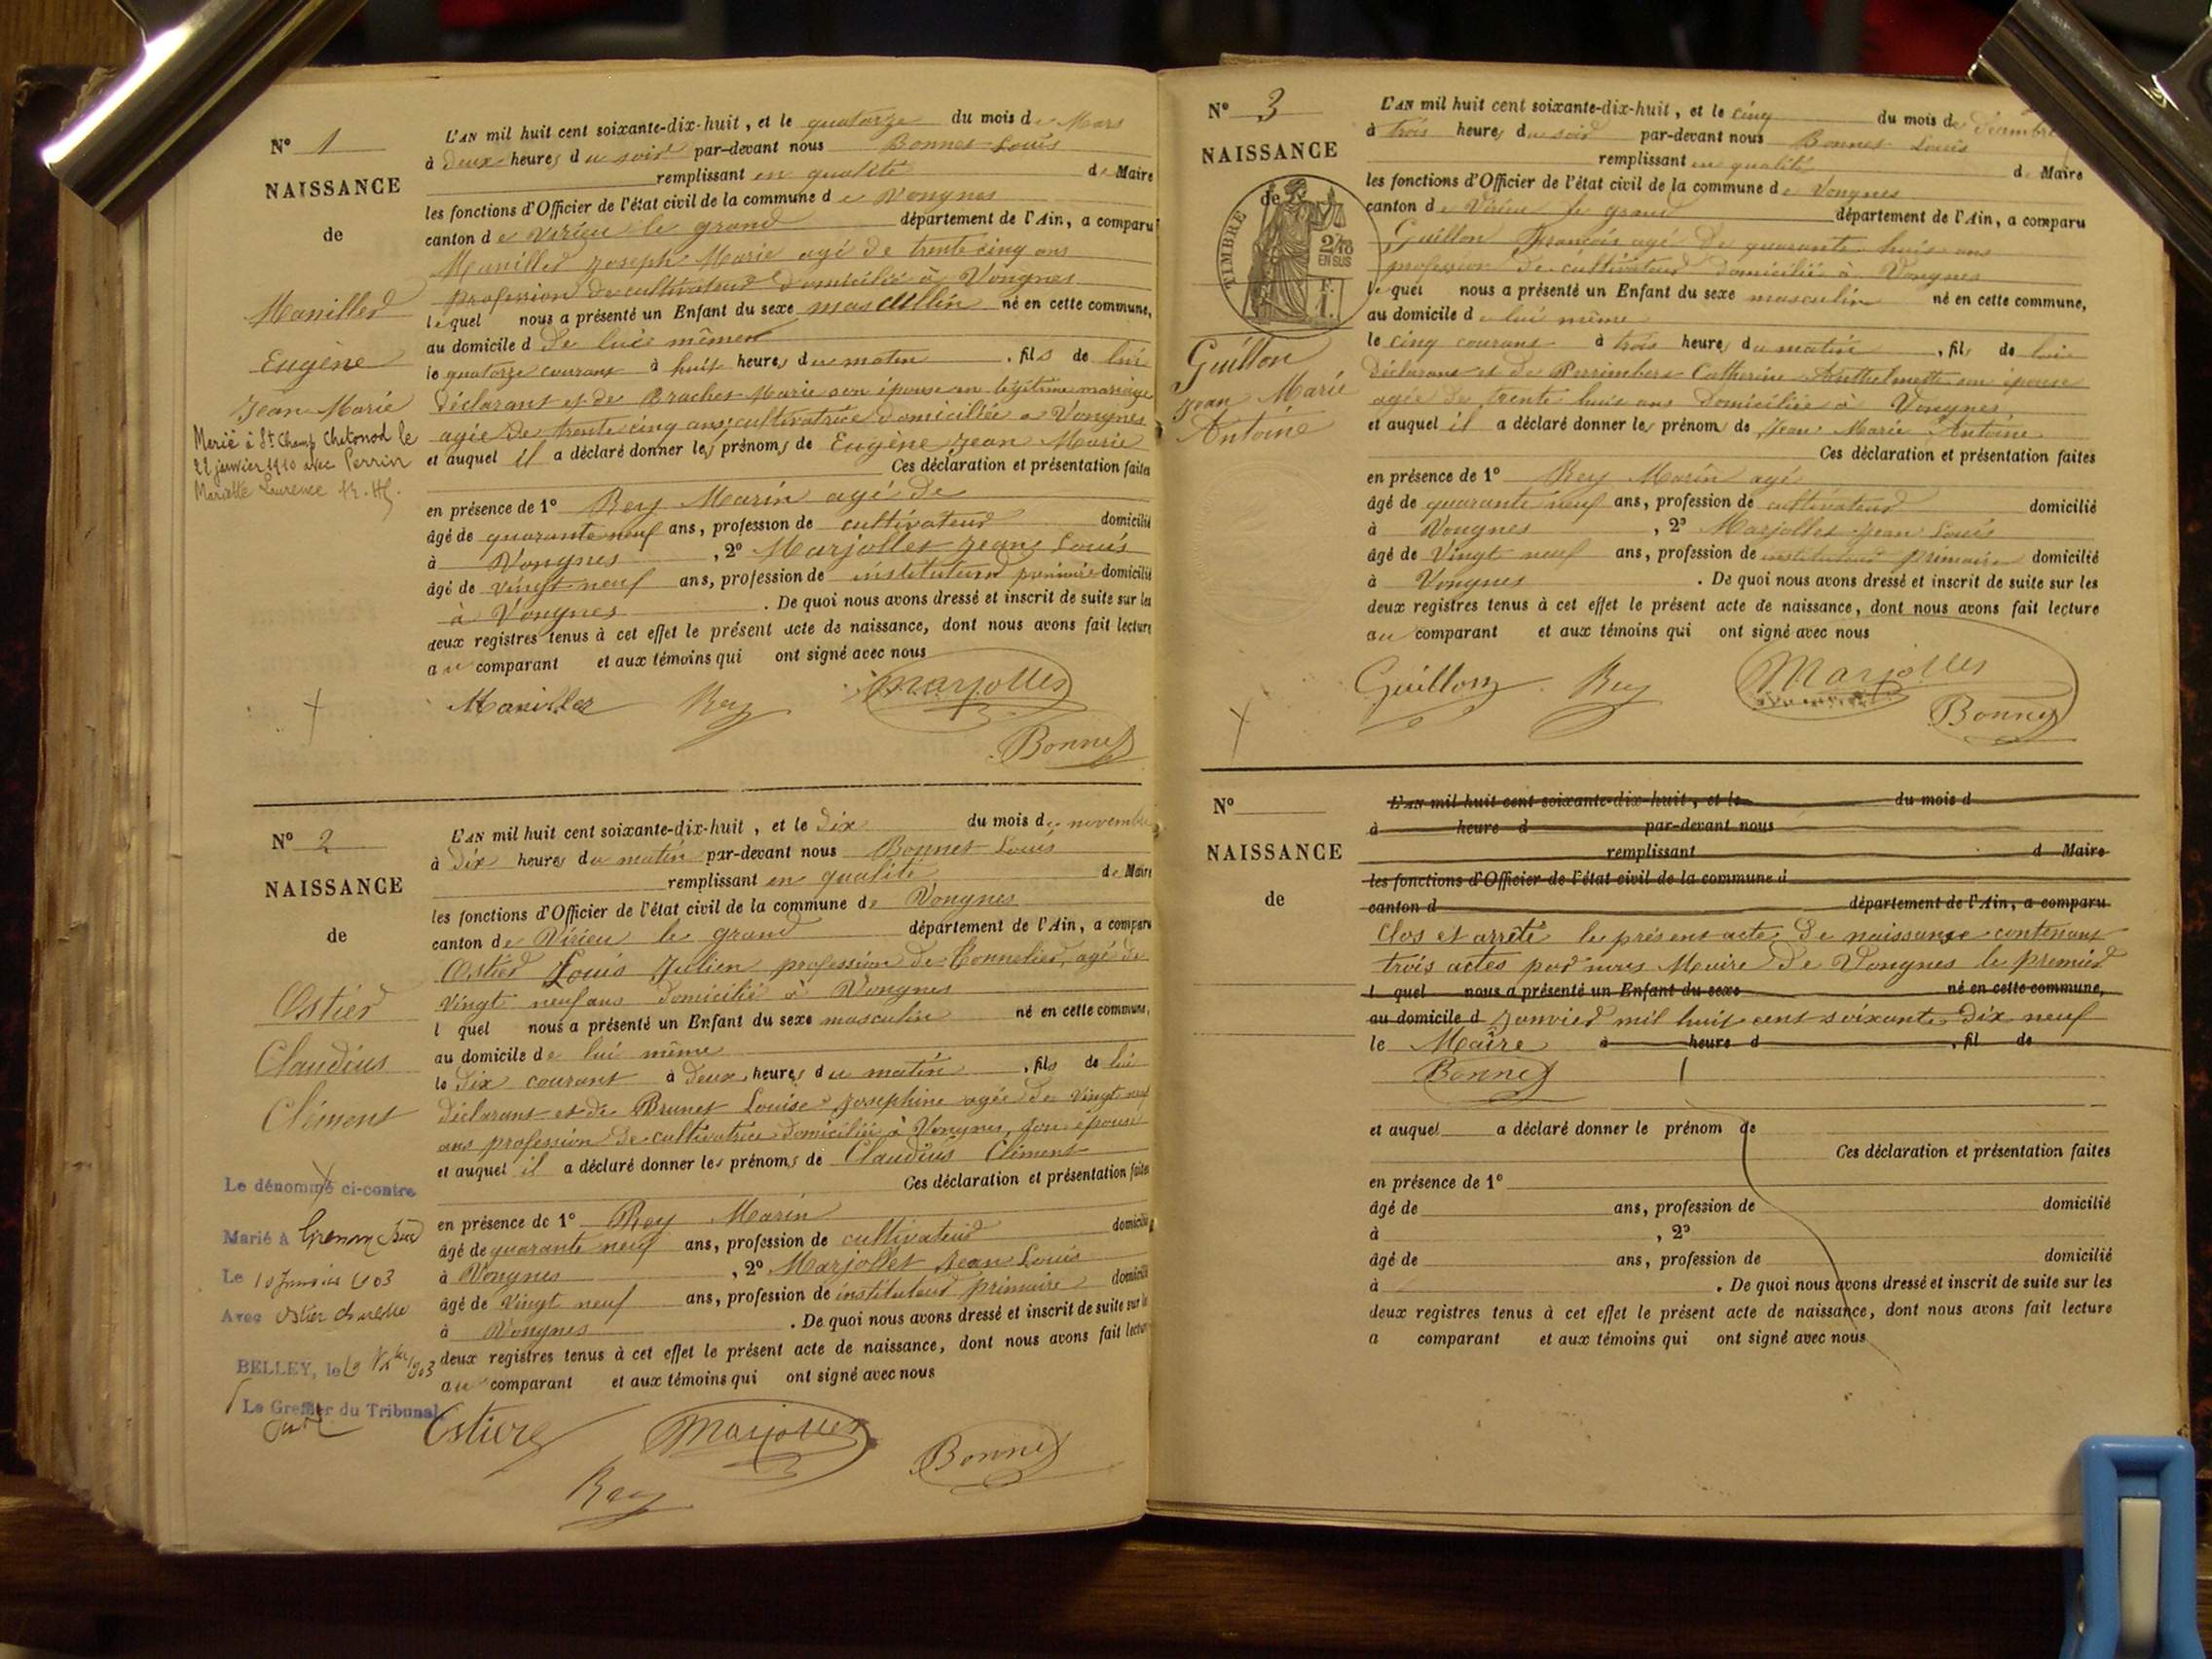 N° 1
NAISSANCE
de
Maniller
Eugène
Jean Marie
Marié à St Champ Chatonod le
22 janvier 1910 avec Perrin
Mariette Laurence
L'AN mil huit cent soixante-dix-huit, et le quatorze du mois de Mars
à deux heures du soir par-devant nous Bonnet Louis
remplissant en qualité de Maire
les fonctions d'Officier de l'état civil de la commune de Vongnes
canton de Virieu le grand département de l'Ain, a comparu
Maniller Joseph Marie agé de trente cinq ans
profession de cultivateur domicilié à Vongnes
lequel nous a présenté un Enfant du sexe masculin né en cette commune,
au domicile d de lui même
le quatorze courant à huit heures du matin, fils de lui
déclarant et de Brachet Marie son épouse en légitime mariage
agée de trente cinq ans cultivatrice domiciliée à Vongnes
et auquel il a déclaré donner les prénoms de Eugène Jean Marie
Ces déclaration et présentation faites
en présence de 1° Rey Marin agé de
âgé de quarante neuf ans, profession de cultivateur domicilié
à Vongnes, 2° Marjollet Jean Louis
âgé de vingt neuf ans, profession de instituteur primaire domicilié
à Vongnes. De quoi nous avons dressé et inscrit de suite sur les
deux registres tenus à cet effet le présent acte de naissance, dont nous avons fait lecture
au comparant et aux témoins qui ont signé avec nous
Maniller Rey Marjollet
Bonnet
N° 2
NAISSANCE
de
Ostier
Claudius
Clément
Le dénommé ci-contre
Marié à
Le 10 Janvier 1903
Avec Ostier
BELLEY, le 19
Le Greffier du Tribunal
L'AN mil huit cent soixante-dix-huit, et le dix du mois de novembre
à dix heures du matin par-devant nous Bonnet Louis
remplissant en qualité de Maire
les fonctions d'Officier de l'état civil de la commune de Vongnes
canton de Virieu le grand département de l'Ain, a comparu
Ostier Louis Julien profession de Tonnelier, agé de
vingt neuf ans domicilié à Vongnes
l quel nous a présenté un Enfant du sexe masculin né en cette commune,
au domicile de lui même
le dix courant à deux heures du matin, fils de lui
déclarant et de Brunet Louise Josephine agée de vingt neuf
ans profession de cultivatrice domiciliée à Vongnes, son épouse
et auquel il a déclaré donner les prénoms de Claudius Clément
Ces déclaration et présentation faites
en présence de 1° Rey Marin
âgé de quarante neuf ans, profession de cultivateur domicilié
à Vongnes, 2° Marjollet Jean Louis
âgé de vingt neuf ans, profession de instituteur primaire domicilié
à Vongnes. De quoi nous avons dressé et inscrit de suite sur les
deux registres tenus à cet effet le présent acte de naissance, dont nous avons fait lecture
au comparant et aux témoins qui ont signé avec nous
Ostier Marjollet Bonnet
Rey
N° 3
NAISSANCE
de
TIMBRE
2/10
EN SUS
F.
1.
Guillon
Jean Marie
Antoine
L'AN mil huit cent soixante-dix-huit, et le cinq du mois de décembre
à trois heures du soir par-devant nous Bonnet Louis
remplissant en qualité de Maire
les fonctions d'Officier de l'état civil de la commune de Vongnes
canton de Virieu le grand département de l'Ain, a comparu
Guillon François agé de quarante huit ans
profession de cultivateur domicilié à Vongnes
lequel nous a présenté un Enfant du sexe masculin né en cette commune,
au domicile de lui même
le cinq courant à trois heures du matin, fils de lui
déclarant et de Perrimbert Catherine Anthelmette son épouse
agée de trente huit ans domiciliée à Vongnes
et auquel il a déclaré donner les prénoms de Jean Marie Antoine
Ces déclaration et présentation faites
en présence de 1° Rey Marin agé
âgé de quarante neuf ans, profession de cultivateur domicilié
à Vongnes, 2° Marjollet Jean Louis
âgé de Vingt neuf ans, profession de instituteur primaire domicilié
à Vongnes. De quoi nous avons dressé et inscrit de suite sur les
deux registres tenus à cet effet le présent acte de naissance, dont nous avons fait lecture
au comparant et aux témoins qui ont signé avec nous
Guillon Rey Marjollet
Bonnet
N°
NAISSANCE
de
L'AN mil huit cent soixante-dix-huit, et le du mois d
à heure d par-devant nous
remplissant d Maire
les fonctions d'Officier de l'état civil de la commune d
canton d département de l'Ain, a comparu
Clos et arrêté le présent acte de naissance contenant
trois actes par nous Maire de Vongnes le premier
l quel nous a présenté un Enfant du sexe né en cette commune,
au domicile d Janvier mil huit cent soixante dix neuf
le Maire à heure d , fil de
Bonnet
et auquel a déclaré donner le prénom de
Ces déclaration et présentation faites
en présence de 1°
âgé de ans, profession de domicilié
à , 2°
âgé de ans, profession de domicilié
à . De quoi nous avons dressé et inscrit de suite sur les
deux registres tenus à cet effet le présent acte de naissance, dont nous avons fait lecture
a comparant et aux témoins qui ont signé avec nous